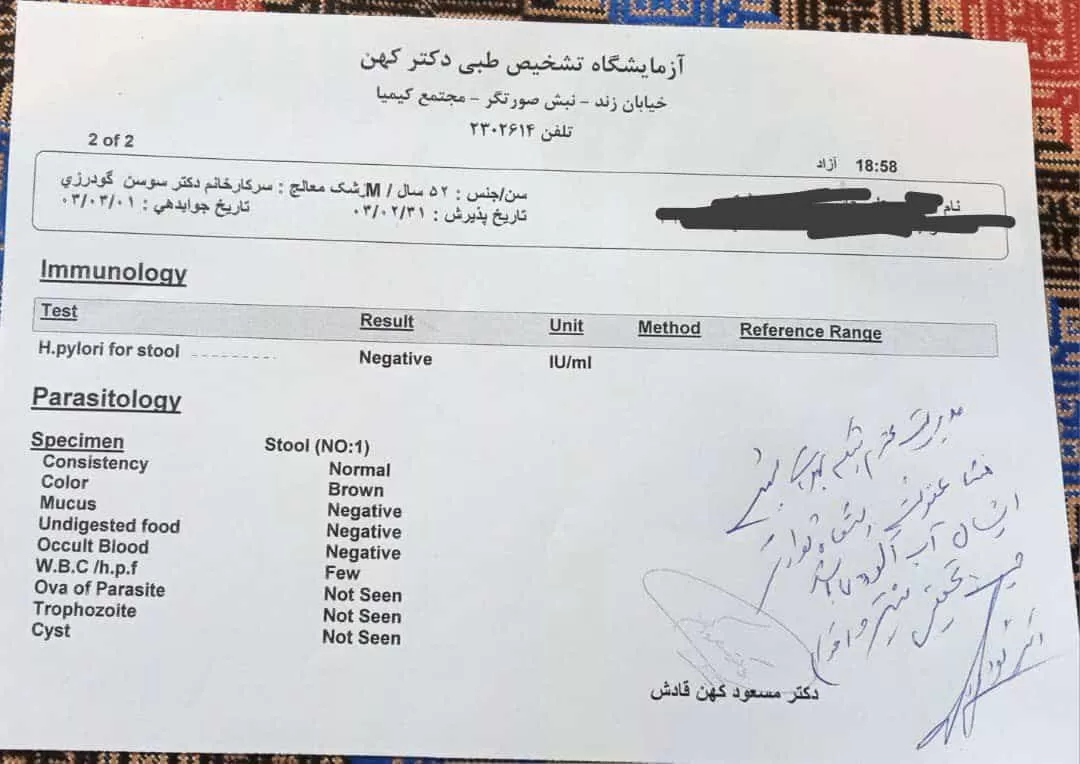 آزمایشگاه تشخیص طبی دکتر کهن
خیابان زند - نبش صورتگر - مجتمع کیمیا
تلفن ۲۳۰۲۶۱۴
2 of 2
آزاد 18:58
نام
سن/جنس : ۵۲ سال / M زشک معالج : سرکارخانم دکتر سوسن گودرزي
تاریخ پذیرش : ۰۳/۰۲/۳۱ تاریخ جوابدهي : ۰۳/۰۳/۰۱
Immunology
Test Result Unit Method Reference Range
H.pylori for stool Negative IU/ml
Parasitology
Specimen Stool (NO:1)
Consistency Normal
Color Brown
Mucus Negative
Undigested food Negative
Occult Blood Negative
W.B.C /h.p.f Few
Ova of Parasite Not Seen
Trophozoite Not Seen
Cyst Not Seen
مدیریت محترم
منشا عفونت
آب آلوده باشد
تحقیق
دکتر مسعود کهن قادش